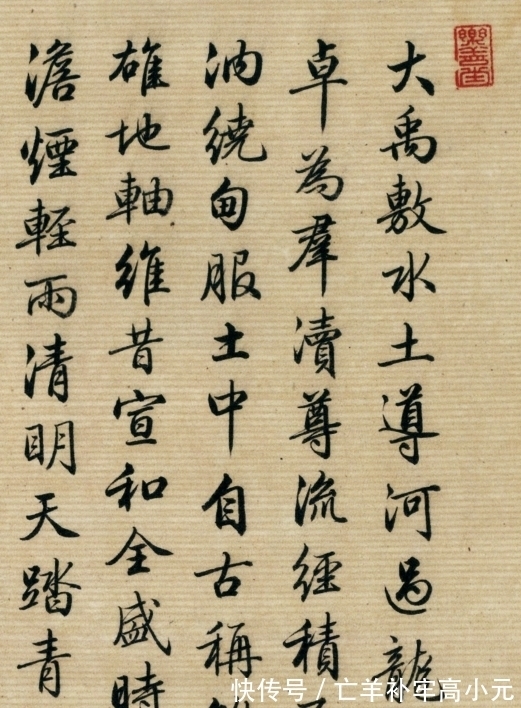 大禹敷水土導河過龍
卓為羣瀆尊流經積
汭繞甸服土中自古稱
雄地軸維昔宣和全盛時
澹煙輕雨清明天踏青
快传号/亡羊补牢高小元